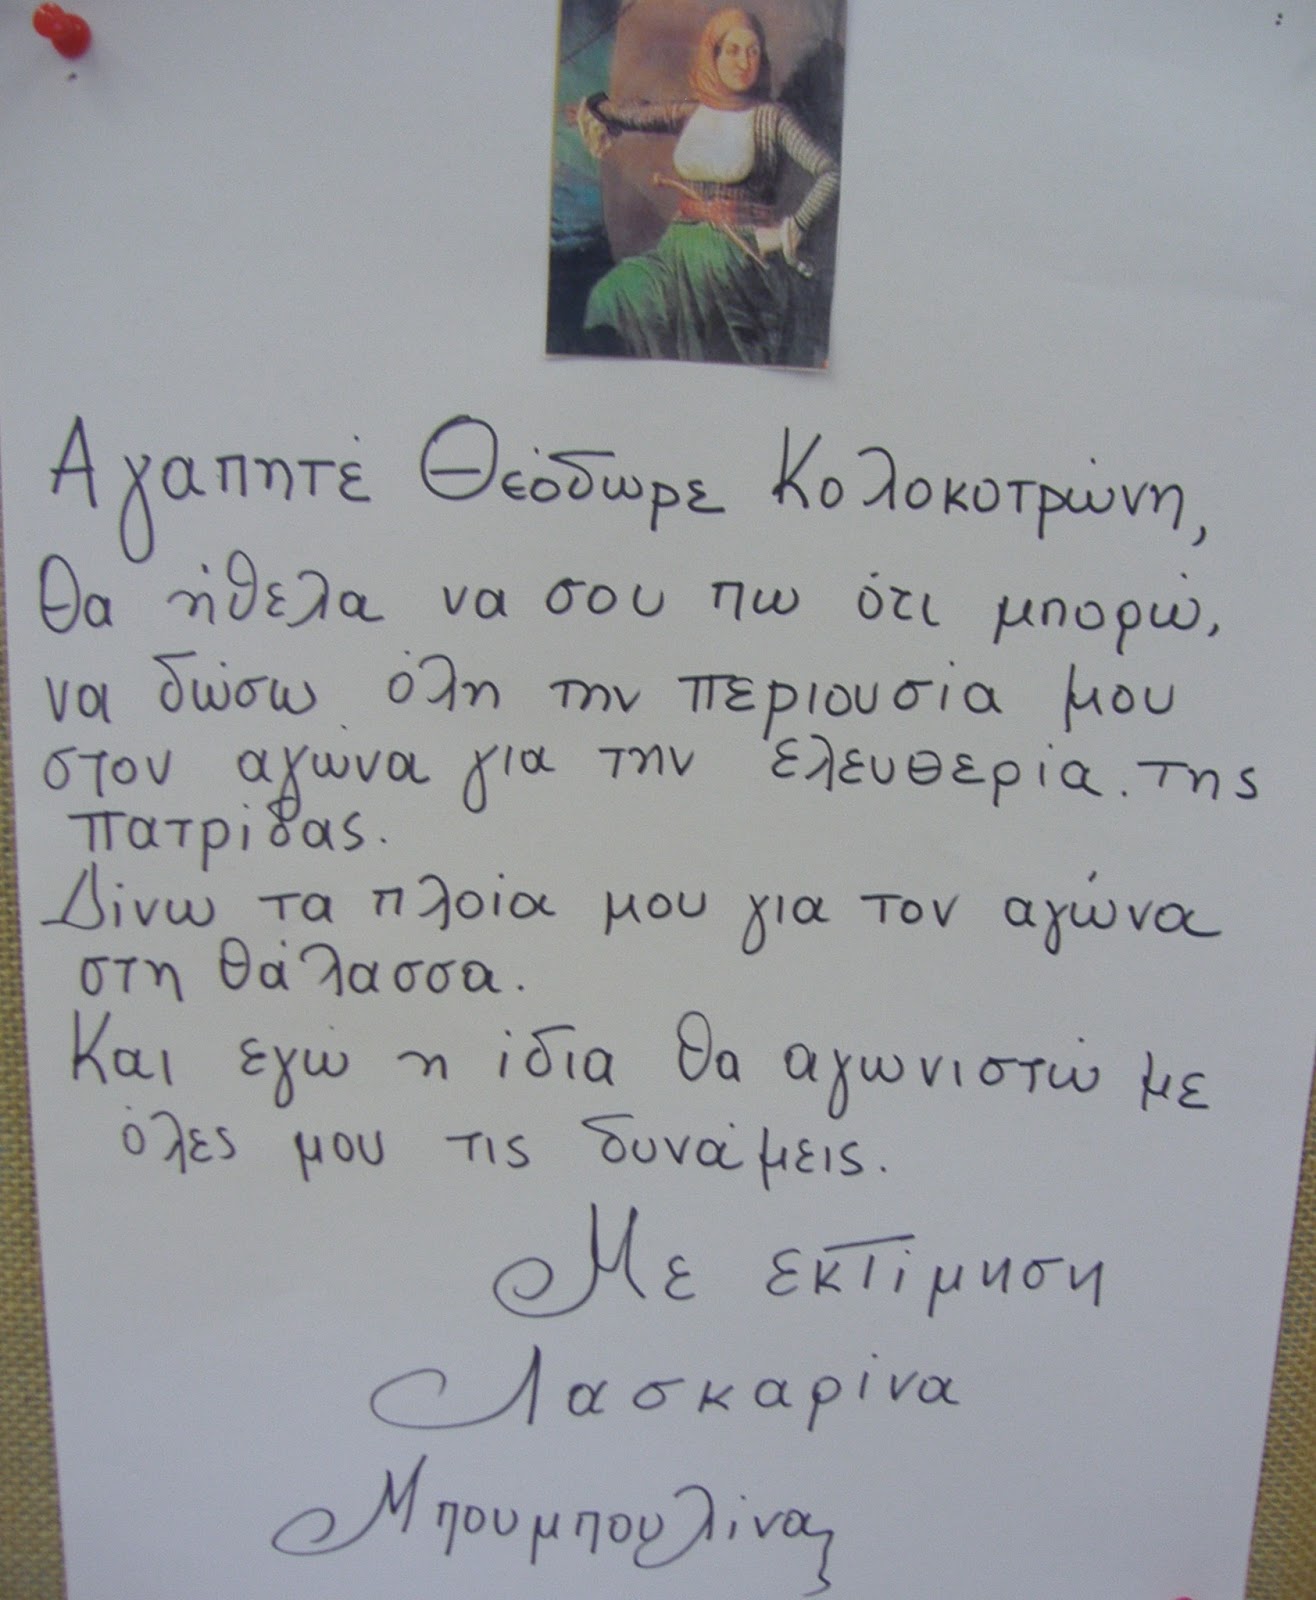 Αγαπητέ Θεόδωρε Κολοκοτρώνη,
Θα ήθελα να σου πω ότι μπορώ,
να δώσω όλη την περιουσία μου
στον αγώνα για την ελευθερία της
πατρίδας.
Δίνω τα πλοία μου για τον αγώνα
στη θάλασσα.
Και εγώ η ίδια θα αγωνιστώ με
όλες μου τις δυνάμεις.
Με εκτίμηση
Λασκαρίνα
Μπουμπουλίνα